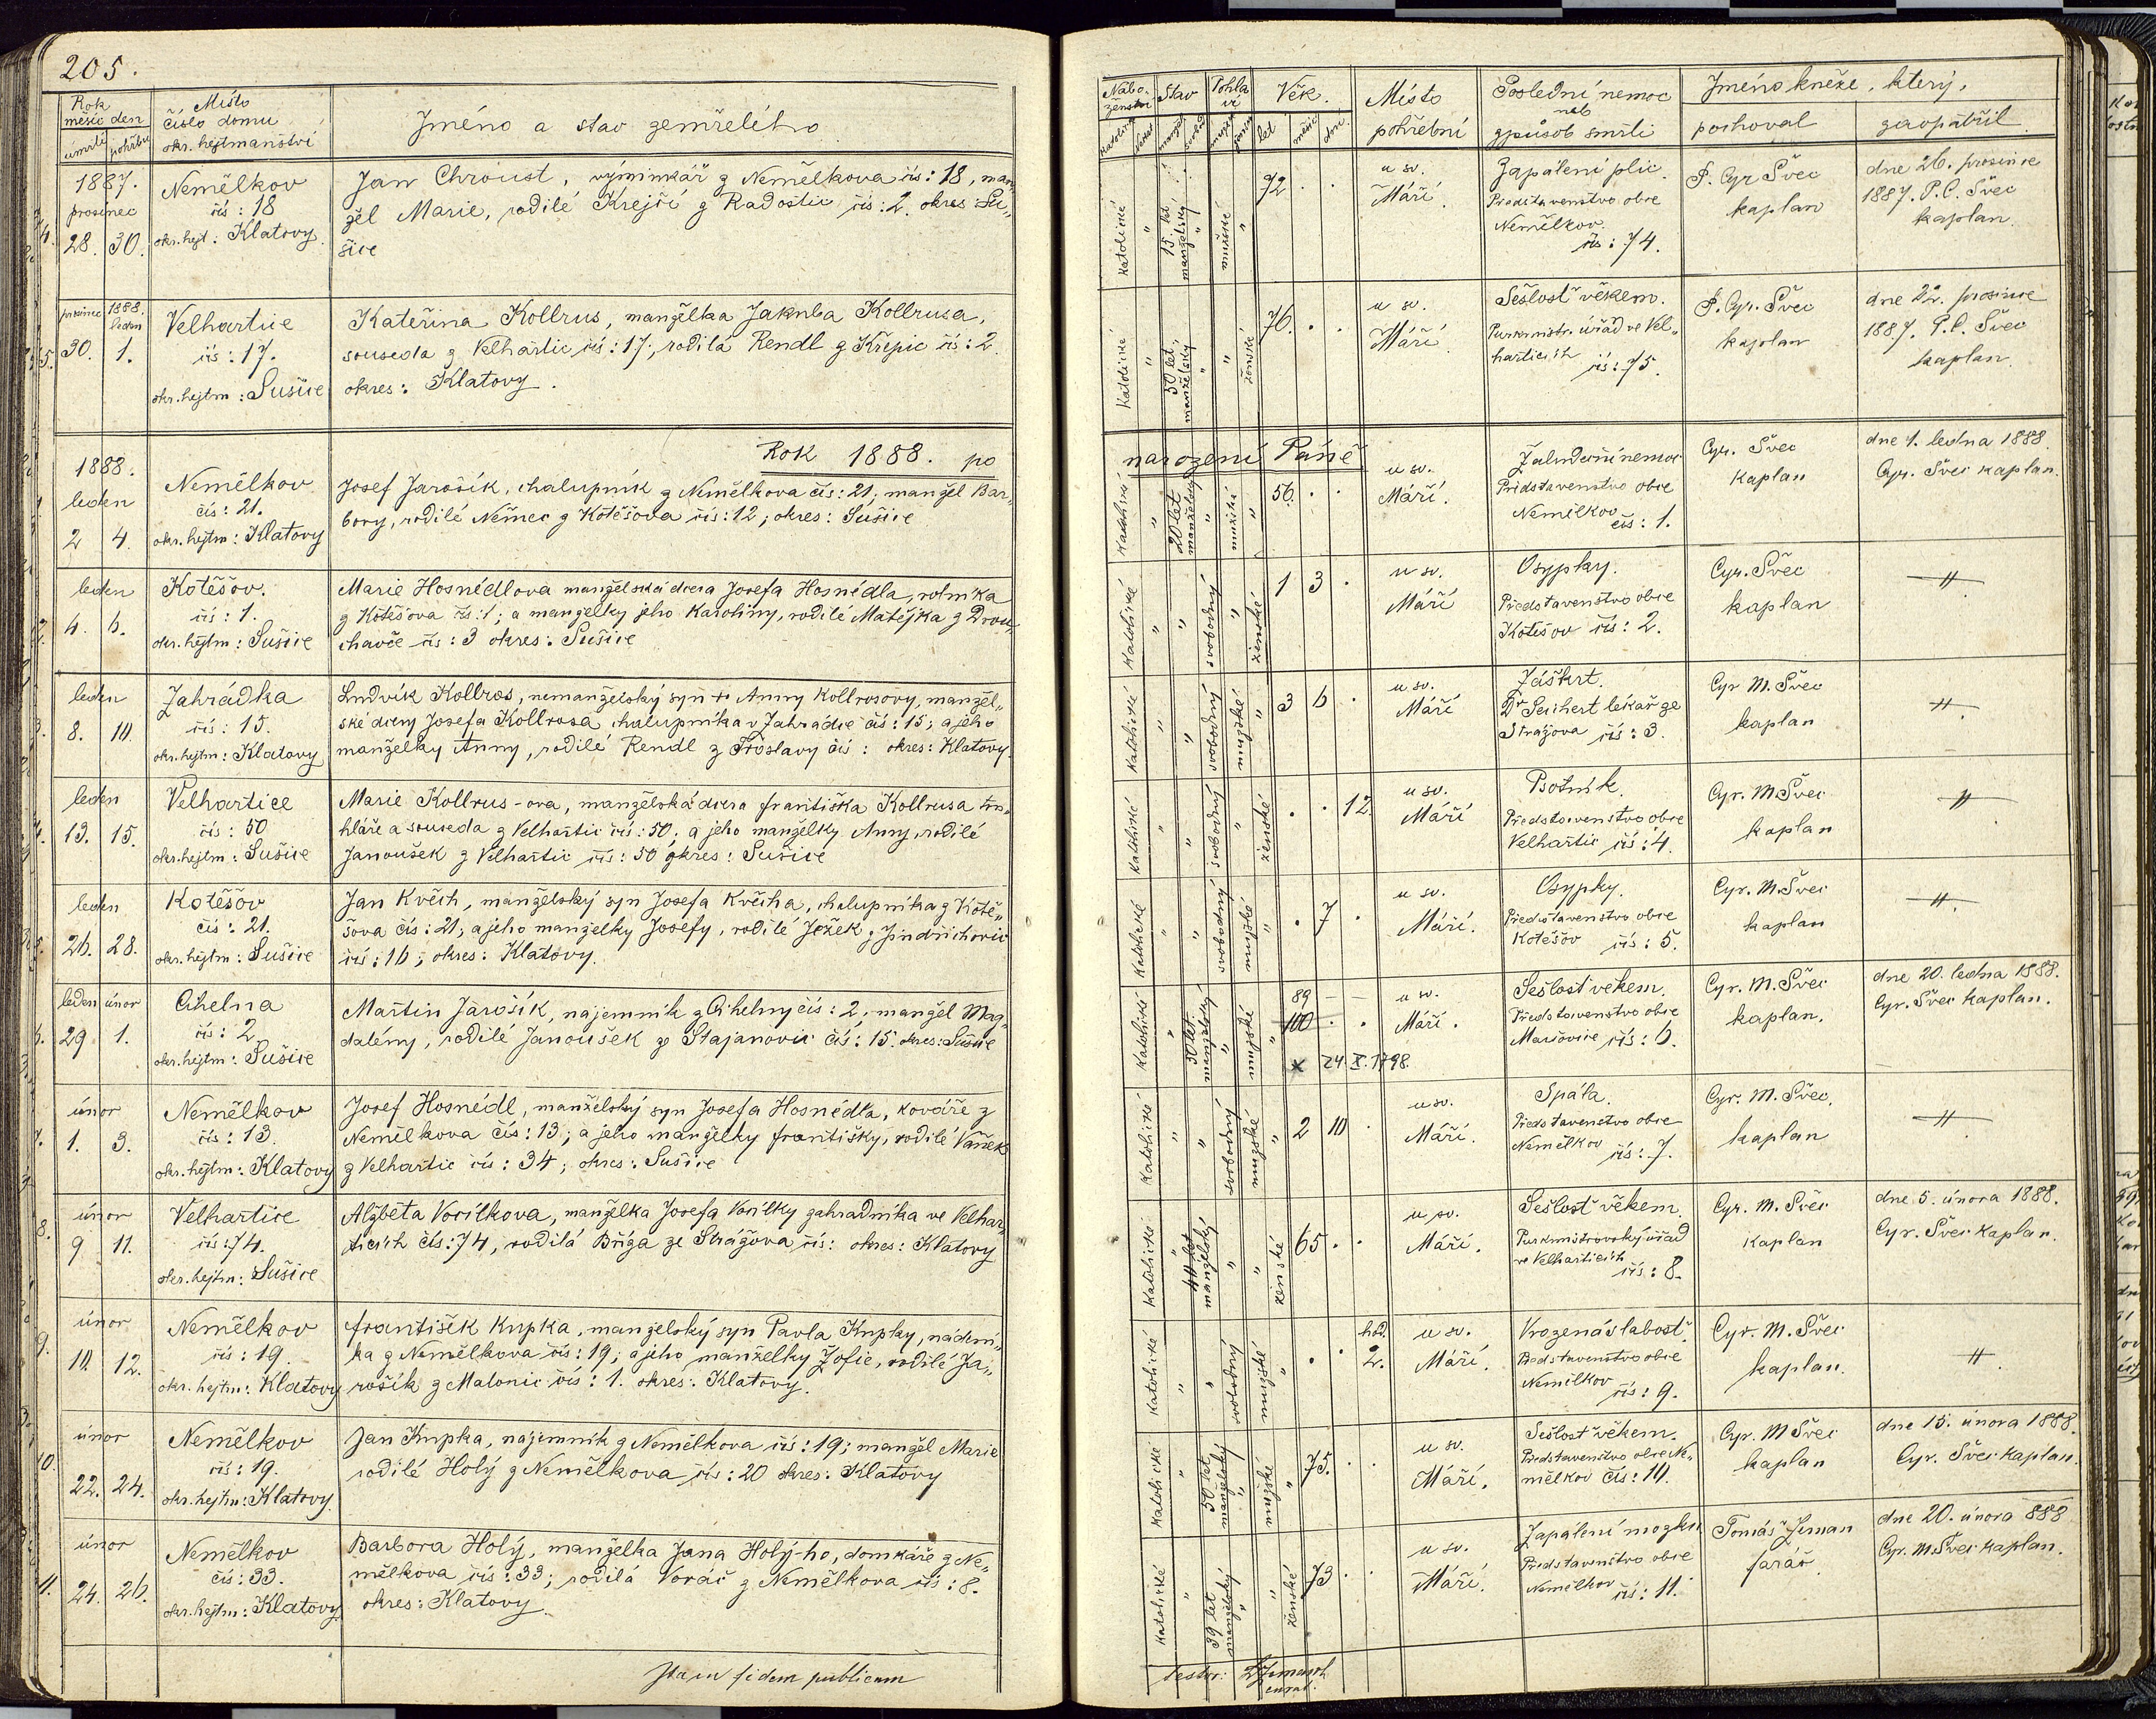 205.
Rok
měsíc den
úmrtí pohřbu
Místo
číslo domu
okr. hejtmanství
Jméno a stav zemřelého
1887.
prosinec
28. 30.
Nemělkov
čís: 18
okr. hejt: Klatovy.
Jan Chroust, výminkář z Nemělkova čís: 18, man„
žel Marie, rodilé Krejčí z Radostic čís: 2. okres Su„
šice
5.
prosinec 1888. leden
30. 1.
Velhartice
čís: 17.
okr. hejtm: Sušice
Kateřina Kollrus, manželka Jakuba Kollrusa,
souseda z Velhartic čís: 17; rodilá Rendl z Křepic čís: 2.
okres: Klatovy.
Rok 1888. po
1888.
leden
2 4.
Nemělkov
čís: 21.
okr. hejtm: Klatovy
Josef Jarošík, chalupník z Nemělkova čís: 21; manžel Bar„
bory, rodilé Němec z Kotěšova čís: 12; okres: Sušice
2.
leden
4. 6.
Kotěšov.
čís: 1.
okr. hejtm: Sušice
Marie Hosnédlova manželská dcera Josefa Hosnédla, rolníka
z Kotěšova čís: 1; a manželky jeho Karoliny, rodilé Matějka z Drou„
chavče čís: 3 okres: Sušice
3.
leden
8. 10.
Zahrádka
čís: 15.
okr. hejtm: Klatovy
Ludvík Kollros, nemanželský syn Anny Kollrosovy, manžel„
ské dcery Josefa Kollrosa chalupníka v Zahrádce čís: 15; a jeho
manželky Anny, rodilé Rendl z čís: okres: Klatovy.
4.
leden
13. 15.
Velhartice
čís: 50
okr. hejtm: Sušice
Marie Kollrus-ova, manželská dcera Františka Kollrusa tru„
hláře a souseda z Velhartic čís: 50; a jeho manželky Anny, rodilé
Janoušek z Velhartic čís: 50 okres: Sušice
5.
leden
26. 28.
Kotěšov
čís: 21.
okr. hejtm: Sušice
Jan Květh, manželský syn Josefa Květha, chalupníka z Kotě„
šova čís: 21; a jeho manželky Josefy, rodilé Ježek z Jindřichovic
čís: 16; okres: Klatovy.
6.
leden únor
29 1.
Cihelna
čís: 2.
okr. hejtm: Sušice
Martin Jarošík, nájemník z Cihelny čís: 2; manžel Mag„
dalény, rodilé Janoušek ze Stajanovic čís: 15. okres: Sušice
7.
únor
1. 3.
Nemělkov
čís: 13.
okr. hejtm: Klatovy
Josef Hosnédl, manželský syn Josefa Hosnédla, kováře z
Nemělkova čís: 13; a jeho manželky Františky, rodilé Vaněk
z Velhartic čís: 34; okres: Sušice
8.
únor
9 11.
Velhartice
čís: 74.
okr. hejtm: Sušice
Alžběta Voříškova, manželka Josefa zahradníka ve Velhar„
ticích čís: 74, rodilá Bříza ze Strážova čís: okres: Klatovy
9.
únor
10. 12.
Nemělkov
čís: 19.
okr. hejtm: Klatovy
František Krupka, manželský syn Pavla Krupky, nádení„
ka z Nemělkova čís: 19; a jeho manželky Žofie, rodilé Ja„
rošík z Malonic čís: 1. okres: Klatovy.
10.
únor
22. 24.
Nemělkov
čís: 19.
okr. hejtm: Klatovy.
Jan Krupka, nájemník z Nemělkova čís: 19; manžel Marie
rodilé Holý z Nemělkova čís: 20 okres: Klatovy
11.
únor
24. 26.
Nemělkov
čís: 33.
okr. hejtm: Klatovy
Barbora Holý, manželka Jana Holý-ho, domkáře z Ne„
mělkova čís: 33; rodilá Voráč z Nemělkova čís: 8.
okres: Klatovy.
Ita in fidem publicam
Nábo-
ženství
Stav
Pohla
ví
Věk.
let měsíc dní
Místo
pohřební
Poslední nemoc
neb
způsob smrti
Jméno kněze, který,
pochoval
zaopatřil
katolické
15 let
manželský
mužské
72
u sv.
Máří.
Zapálení plic.
Představenstvo obce
Nemělkov.
čís: 74.
P. Cyr Švec
kaplan
dne 26. prosince
1887. P. C. Švec
kaplan.
katolické
50 let
manželský
ženské
76.
u sv.
Máří
Sešlost věkem.
Purkmistr. úřad ve Vel„
harticích čís: 75.
P. Cyr. Švec
kaplan
dne 22. prosince
1887. P. C. Švec
kaplan.
narození Páně
katolické
20 let
manželský
mužské
56.
u sv.
Máří.
Žaludeční nemoc
Představenstvo obce
Nemělkov
čís: 1.
Cyr. Švec
kaplan
dne 1. ledna 1888.
Cyr. Švec kaplan.
katolické
svobodný
ženské
1 3
u sv.
Máří
Osypky.
Představenstvo obce
Kotěšov čís: 2.
Cyr. Švec
kaplan
katolické
svobodný
mužské
3 6
u sv.
Máří
Záškrt.
Dr Seichert lékař ze
Strážova čís: 3.
Cyr M. Švec
kaplan
katolické
svobodný
ženské
12.
u sv.
Máří
Psotník.
Představenstvo obce
Velhartic čís: 4.
Cyr. M. Švec
kaplan
katolické
svobodný
mužské
7
u sv.
Máří.
Osypky.
Představenstvo obce
Kotěšov čís: 5.
Cyr. M. Švec
kaplan
katolické
50 let
manželský
mužské
89
100
* 24. X. 1798.
u sv.
Máří.
Sešlost věkem.
Představenstvo obce
Mašovice čís: 6.
Cyr. M. Švec
kaplan.
dne 20. ledna 1888.
Cyr. Švec kaplan.
katolické
svobodný
mužské
2 10
u sv.
Máří.
Spála.
Představenstvo obce
Nemělkov čís: 7.
Cyr. M. Švec.
kaplan
katolické
40 let
manželský
ženské
65
u sv.
Máří.
Sešlost věkem.
Purkmistrovský úřad
ve Velharticích
čís: 8.
Cyr. M. Švec
kaplan
dne 5. února 1888.
Cyr. Švec kaplan.
katolické
svobodný
mužské
hod.
2.
u sv.
Máří.
Vrozená slabost.
Představenstvo obce
Nemělkov
čís: 9.
Cyr. M. Švec
kaplan.
katolické
50 let
manželský
mužské
75.
u sv.
Máří.
Sešlost věkem.
Představenstvo obce Ne„
mělkov čís: 10.
Cyr. M Švec
kaplan
dne 15. února 1888.
Cyr. Švec kaplan.
katolické
39 let
manželský
ženské
73
u sv.
Máří.
Zapálení mozku
Představenstvo obce
Nemělkov čís: 11.
Tomáš Zeman
farář
dne 20. února 888
Cyr. M. Švec kaplan.
testor: